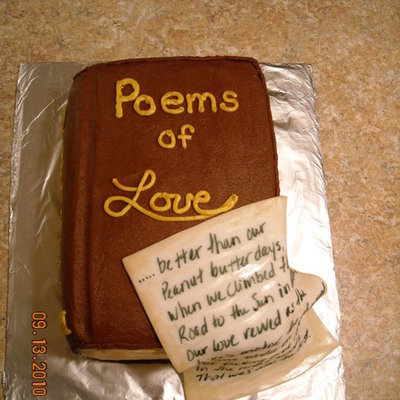 Poems
of
Love
..... better than our
Peanut butter days,
when we climbed t
Road to the Sun in
our love rewed
in the
That was
09.13.2010